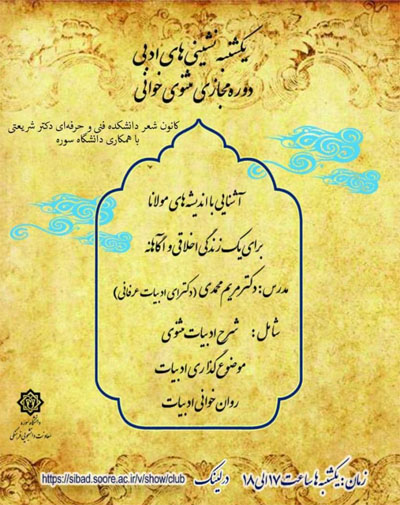 یکشنبه نشینی های ادبی
دوره مجازی مثنوی خوانی
کانون شعر دانشکده فنی و حرفه‌ای دکتر شریعتی
با همکاری دانشگاه سوره
آشنایی با اندیشه های مولانا
برای یک زندگی اخلاقی و آگاهانه
مدرس: دکتر مریم محمدی (دکترای ادبیات عرفانی)
شامل: شرح ادبیات مثنوی
موضوع گذاری ادبیات
روان خوانی ادبیات
دانشگاه سوره
معاونت دانشجویی فرهنگی
زمان: یکشنبه ها ساعت ۱۷ الی ۱۸ در لینک https://sibad.soore.ac.ir/v/show/club